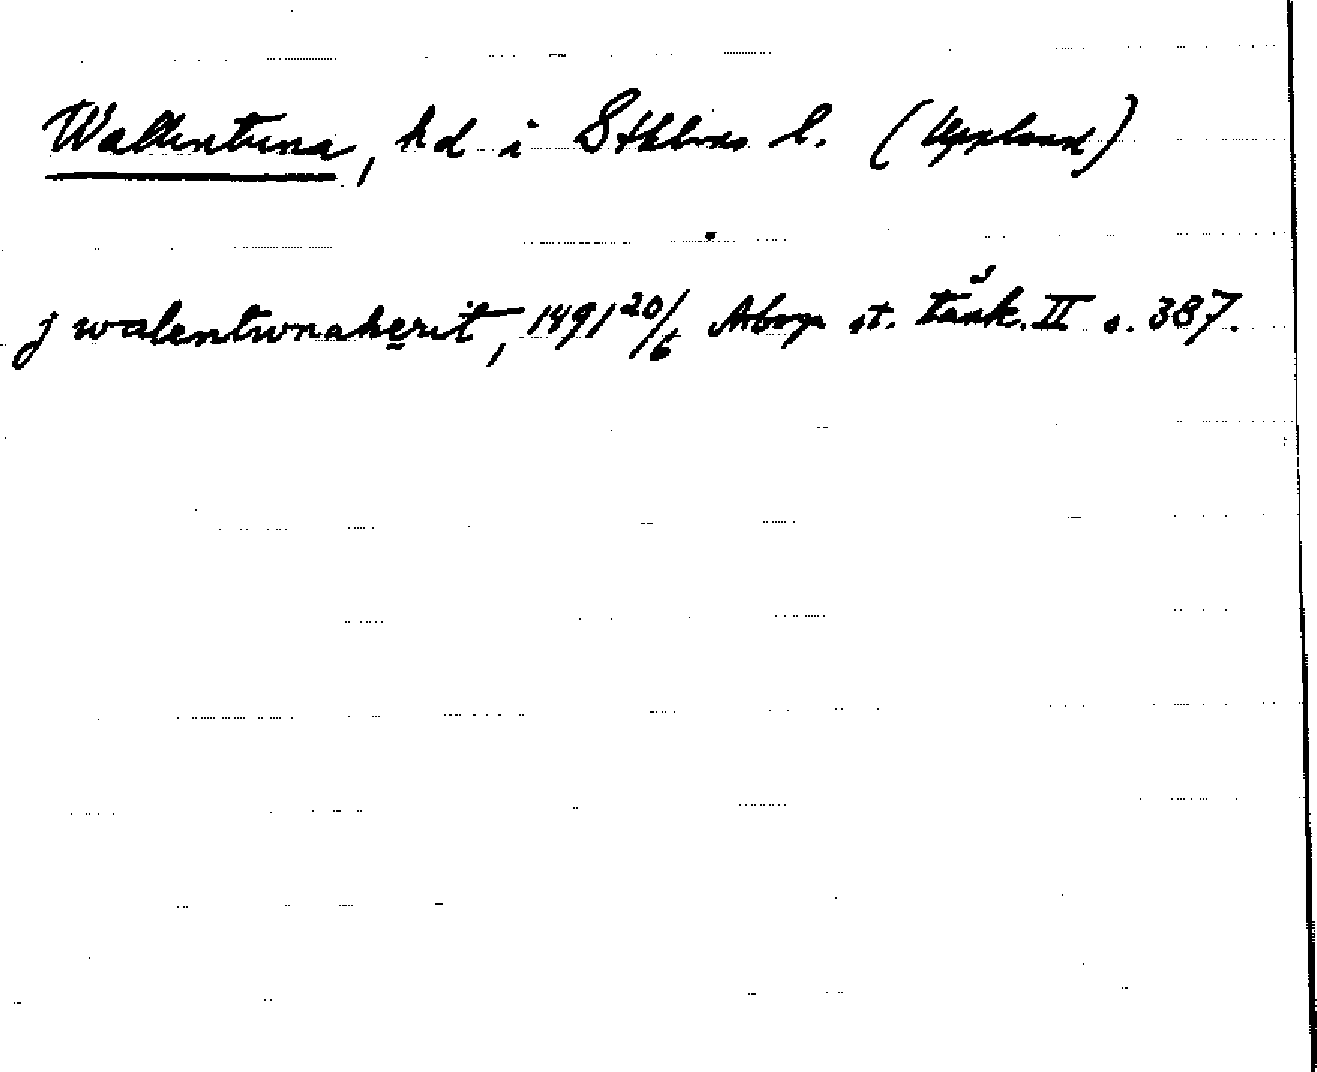 Wallentuna, hd i Sthlms l. (Uppland)
j walentwnaherit, 1491 20/6 st. tänk. II s. 387.